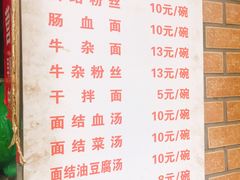 面结粉丝 10元/碗
肠血面 10元/碗
牛杂面 13元/碗
牛杂粉丝 13元/碗
干拌面 5元/碗
面结血汤 10元/碗
面结菜汤 10元/碗
面结油豆腐汤 10元/碗
8元/碗